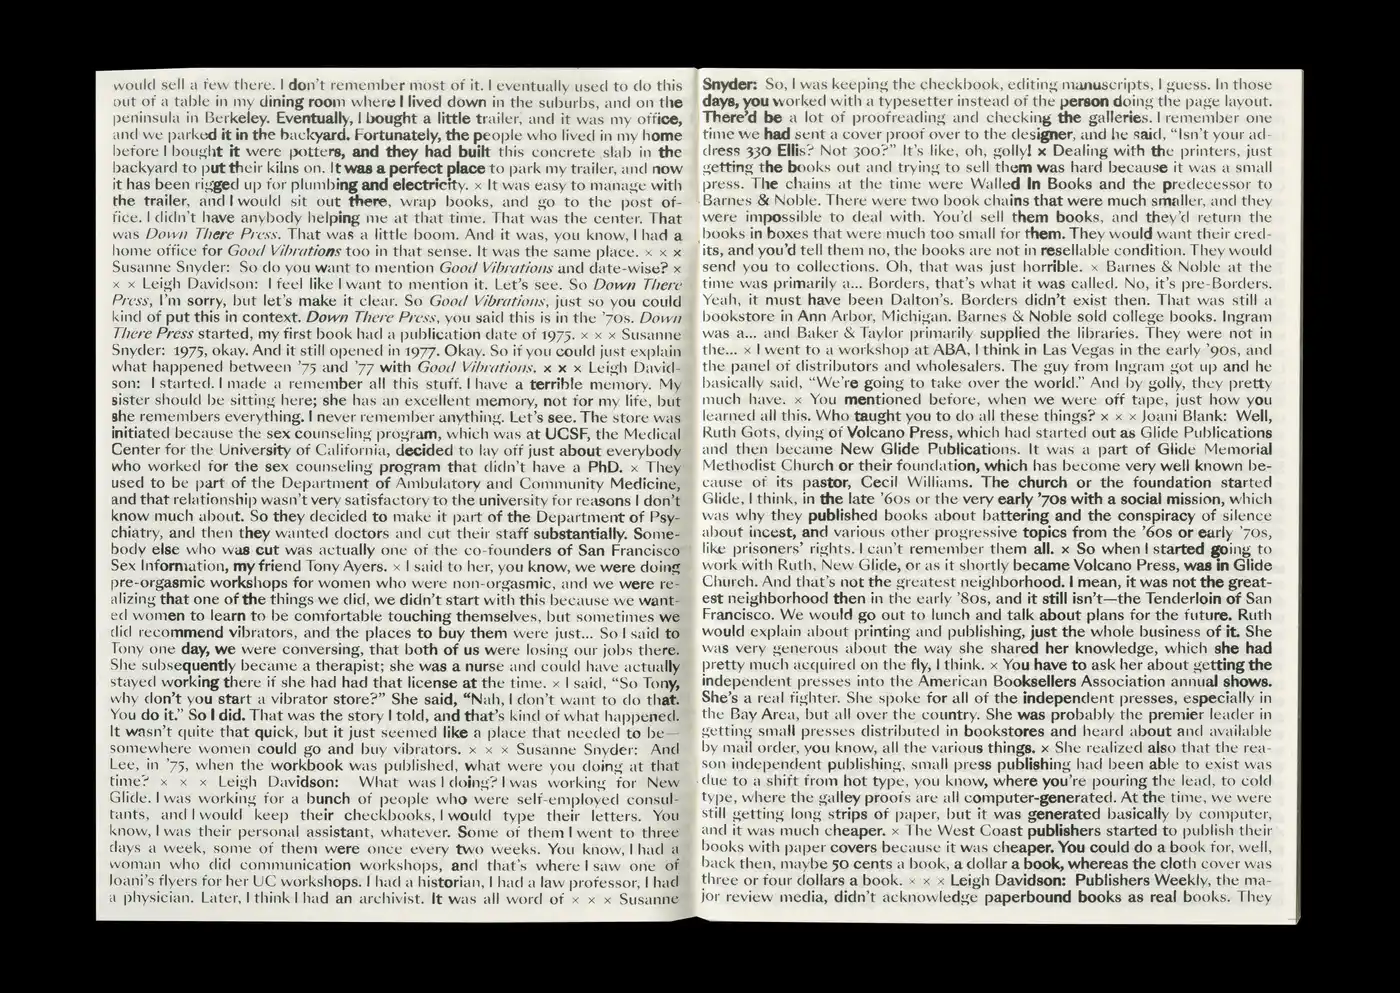 would sell a few there. I don't remember most of it. I eventually used to do this
out of a table in my dining room where I lived down in the suburbs, and on the
peninsula in Berkeley. Eventually, I bought a little trailer, and it was my office,
and we parked it in the backyard. Fortunately, the people who lived in my home
before I bought it were potters, and they had built this concrete slab in the
backyard to put their kilns on. It was a perfect place to park my trailer, and now
it has been rigged up for plumbing and electricity. × It was easy to manage with
the trailer, and I would sit out there, wrap books, and go to the post of-
fice. I didn't have anybody helping me at that time. That was the center. That
was Down There Press. That was a little boom. And it was, you know, I had a
home office for Good Vibrations too in that sense. It was the same place. × × ×
Susanne Snyder: So do you want to mention Good Vibrations and date-wise? ×
× × Leigh Davidson: I feel like I want to mention it. Let's see. So Down There
Press, I'm sorry, but let's make it clear. So Good Vibrations, just so you could
kind of put this in context. Down There Press, you said this is in the '70s. Down
There Press started, my first book had a publication date of 1975. × × × Susanne
Snyder: 1975, okay. And it still opened in 1977. Okay. So if you could just explain
what happened between '75 and '77 with Good Vibrations. × × × Leigh David-
son: I started. I made a remember all this stuff. I have a terrible memory. My
sister should be sitting here; she has an excellent memory, not for my life, but
she remembers everything. I never remember anything. Let's see. The store was
initiated because the sex counseling program, which was at UCSF, the Medical
Center for the University of California, decided to lay off just about everybody
who worked for the sex counseling program that didn't have a PhD. × They
used to be part of the Department of Ambulatory and Community Medicine,
and that relationship wasn't very satisfactory to the university for reasons I don't
know much about. So they decided to make it part of the Department of Psy-
chiatry, and then they wanted doctors and cut their staff substantially. Some-
body else who was cut was actually one of the co-founders of San Francisco
Sex Information, my friend Tony Ayers. × I said to her, you know, we were doing
pre-orgasmic workshops for women who were non-orgasmic, and we were re-
alizing that one of the things we did, we didn't start with this because we want-
ed women to learn to be comfortable touching themselves, but sometimes we
did recommend vibrators, and the places to buy them were just... So I said to
Tony one day, we were conversing, that both of us were losing our jobs there.
She subsequently became a therapist; she was a nurse and could have actually
stayed working there if she had had that license at the time. × I said, "So Tony,
why don't you start a vibrator store?" She said, "Nah, I don't want to do that.
You do it." So I did. That was the story I told, and that's kind of what happened.
It wasn't quite that quick, but it just seemed like a place that needed to be—
somewhere women could go and buy vibrators. × × × Susanne Snyder: And
Lee, in '75, when the workbook was published, what were you doing at that
time? × × × Leigh Davidson: What was I doing? I was working for New
Glide. I was working for a bunch of people who were self-employed consul-
tants, and I would keep their checkbooks, I would type their letters. You
know, I was their personal assistant, whatever. Some of them I went to three
days a week, some of them were once every two weeks. You know, I had a
woman who did communication workshops, and that's where I saw one of
Joani's flyers for her UC workshops. I had a historian, I had a law professor, I had
a physician. Later, I think I had an archivist. It was all word of × × × Susanne
Snyder: So, I was keeping the checkbook, editing manuscripts, I guess. In those
days, you worked with a typesetter instead of the person doing the page layout.
There'd be a lot of proofreading and checking the galleries. I remember one
time we had sent a cover proof over to the designer, and he said, "Isn't your ad-
dress 330 Ellis? Not 300?" It's like, oh, golly! × Dealing with the printers, just
getting the books out and trying to sell them was hard because it was a small
press. The chains at the time were Walled In Books and the predecessor to
Barnes & Noble. There were two book chains that were much smaller, and they
were impossible to deal with. You'd sell them books, and they'd return the
books in boxes that were much too small for them. They would want their cred-
its, and you'd tell them no, the books are not in resellable condition. They would
send you to collections. Oh, that was just horrible. × Barnes & Noble at the
time was primarily a... Borders, that's what it was called. No, it's pre-Borders.
Yeah, it must have been Dalton's. Borders didn't exist then. That was still a
bookstore in Ann Arbor, Michigan. Barnes & Noble sold college books. Ingram
was a... and Baker & Taylor primarily supplied the libraries. They were not in
the... × I went to a workshop at ABA, I think in Las Vegas in the early '90s, and
the panel of distributors and wholesalers. The guy from Ingram got up and he
basically said, "We're going to take over the world." And by golly, they pretty
much have. × You mentioned before, when we were off tape, just how you
learned all this. Who taught you to do all these things? × × × Joani Blank: Well,
Ruth Gots, dying of Volcano Press, which had started out as Glide Publications
and then became New Glide Publications. It was a part of Glide Memorial
Methodist Church or their foundation, which has become very well known be-
cause of its pastor, Cecil Williams. The church or the foundation started
Glide, I think, in the late '60s or the very early '70s with a social mission, which
was why they published books about battering and the conspiracy of silence
about incest, and various other progressive topics from the '60s or early '70s,
like prisoners' rights. I can't remember them all. × So when I started going to
work with Ruth, New Glide, or as it shortly became Volcano Press, was in Glide
Church. And that's not the greatest neighborhood. I mean, it was not the great-
est neighborhood then in the early '80s, and it still isn't—the Tenderloin of San
Francisco. We would go out to lunch and talk about plans for the future. Ruth
would explain about printing and publishing, just the whole business of it. She
was very generous about the way she shared her knowledge, which she had
pretty much acquired on the fly, I think. × You have to ask her about getting the
independent presses into the American Booksellers Association annual shows.
She's a real fighter. She spoke for all of the independent presses, especially in
the Bay Area, but all over the country. She was probably the premier leader in
getting small presses distributed in bookstores and heard about and available
by mail order, you know, all the various things. × She realized also that the rea-
son independent publishing, small press publishing had been able to exist was
due to a shift from hot type, you know, where you're pouring the lead, to cold
type, where the galley proofs are all computer-generated. At the time, we were
still getting long strips of paper, but it was generated basically by computer,
and it was much cheaper. × The West Coast publishers started to publish their
books with paper covers because it was cheaper. You could do a book for, well,
back then, maybe 50 cents a book, a dollar a book, whereas the cloth cover was
three or four dollars a book. × × × Leigh Davidson: Publishers Weekly, the ma-
jor review media, didn't acknowledge paperbound books as real books. They